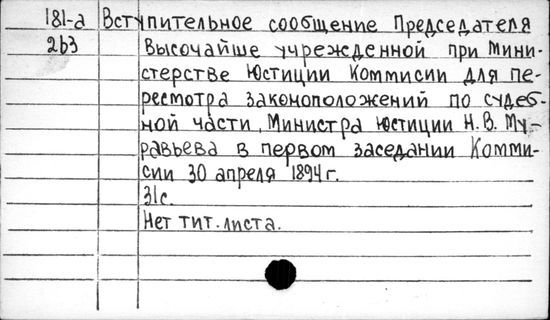 181-а Вступительное сообщение Председателя
263 Высочайше учрежденной при Мини-
стерстве Юстиции Коммисии для пе-
ресмотра законоположений по судеб-
ной части, Министра юстиции Н.В. Му-
равьева в первом заседании Комми-
сии 30 апреля 1894 г.
31с.
Нет тит. листа.